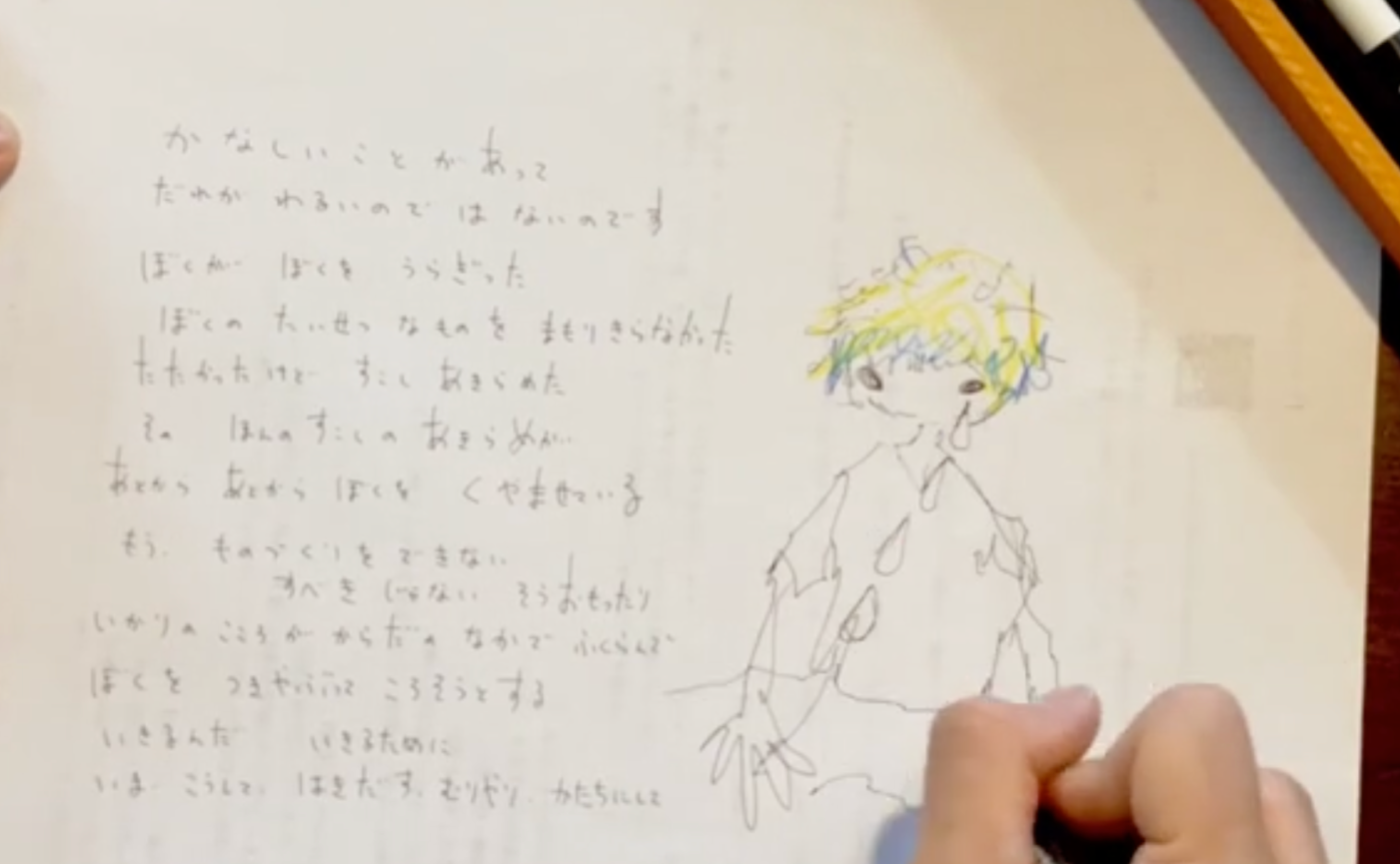 かなしいことがあって
だれか わるいのでは ないのです
ぼくが ぼくを うらぎった
ぼくの たいせつ なものを まもりきらなかった
たたかったけど すこし あきらめた
その ほんのすこしの あきらめが
あとから あとから ぼくを くやませている
もう、ものづくりを できない
すべき じゃない そうおもったり
いかりの こころが からだの なかで ふくらんで
ぼくを つきやぶって ころそうとする
いきるんだ いきるために
いま、こうして、はきだす、むりやり、かたちにして